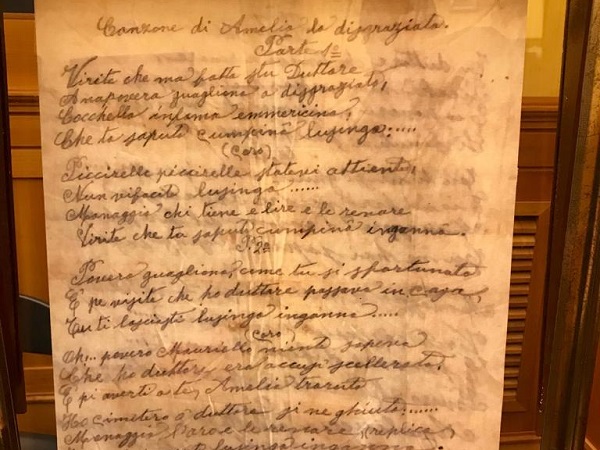 Canzone di Amelia la disgraziata.
Parte 1ª
Virite che ma fatte stu Duttore
A na povera guagliona a disgraziata,
Cocchella infama emmericina,
Che ta saputo cumpinà lusinga:....
(Coro)
Piccirelle piccirelle statevi attiente,
Nun vi facite lusinga......
Managgia chi tiene e lire e le renare
Virite che ta saputo cumpinà inganna.
P. 2ª
Povera guagliona, cume tu si sfortunata
E pe visite che ho duttore passava in casa,
Tu ti lasciaste lusinga inganna.....
(Coro)
Oh... povero Mauriello nient sapeva
Che ho duttore era accupì scellerato,
E pi averti a te, Amelia
Ho cimitero o duttore si ne ghiuto:......
Managgia l'oro e le renare, (replica)
lusinga inganna.